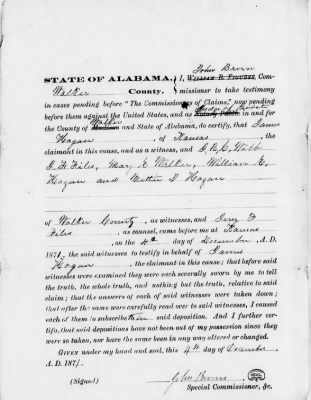 John Brown
STATE OF ALABAMA, I, WILLIAM B. FIGURES, Com-
Walker County. missioner to take testimony
in cases pending before "The Commissioners of Claims," now pending
Judge of Probate
before them against the United States, and as Notary Public in and for
Walker
the County of Madison and State of Alabama, do certify, that James
Hogan, of Kansas, the
claimant in this cause, and as a witness, and
G. H. Files, Mary E. Walker, William E.
Hogan and D. Hogan
of Walker County, as witnesses, and
Files, as counsel, came before me at Kansas
, on the 4th day of December, A. D.
1871, the said witnesses to testify in behalf of James
Hogan, the claimant in this cause; that before said
witnesses were examined they were each severally sworn by me to tell
the truth, the whole truth, and nothing but the truth, relative to said
claim; that the answers of each of said witnesses were taken down;
that after the same were carefully read over to said witnesses, I caused
each of them to subscribe their said deposition. And I further cer-
tify, that said depositions have not been out of my possession since they
were so taken, nor have the same been in any way altered or changed.
GIVEN under my hand and seal, this 4th day of December
A. D. 1871.
(Signed) John Brown SEAL
Special Commissioner, &c.